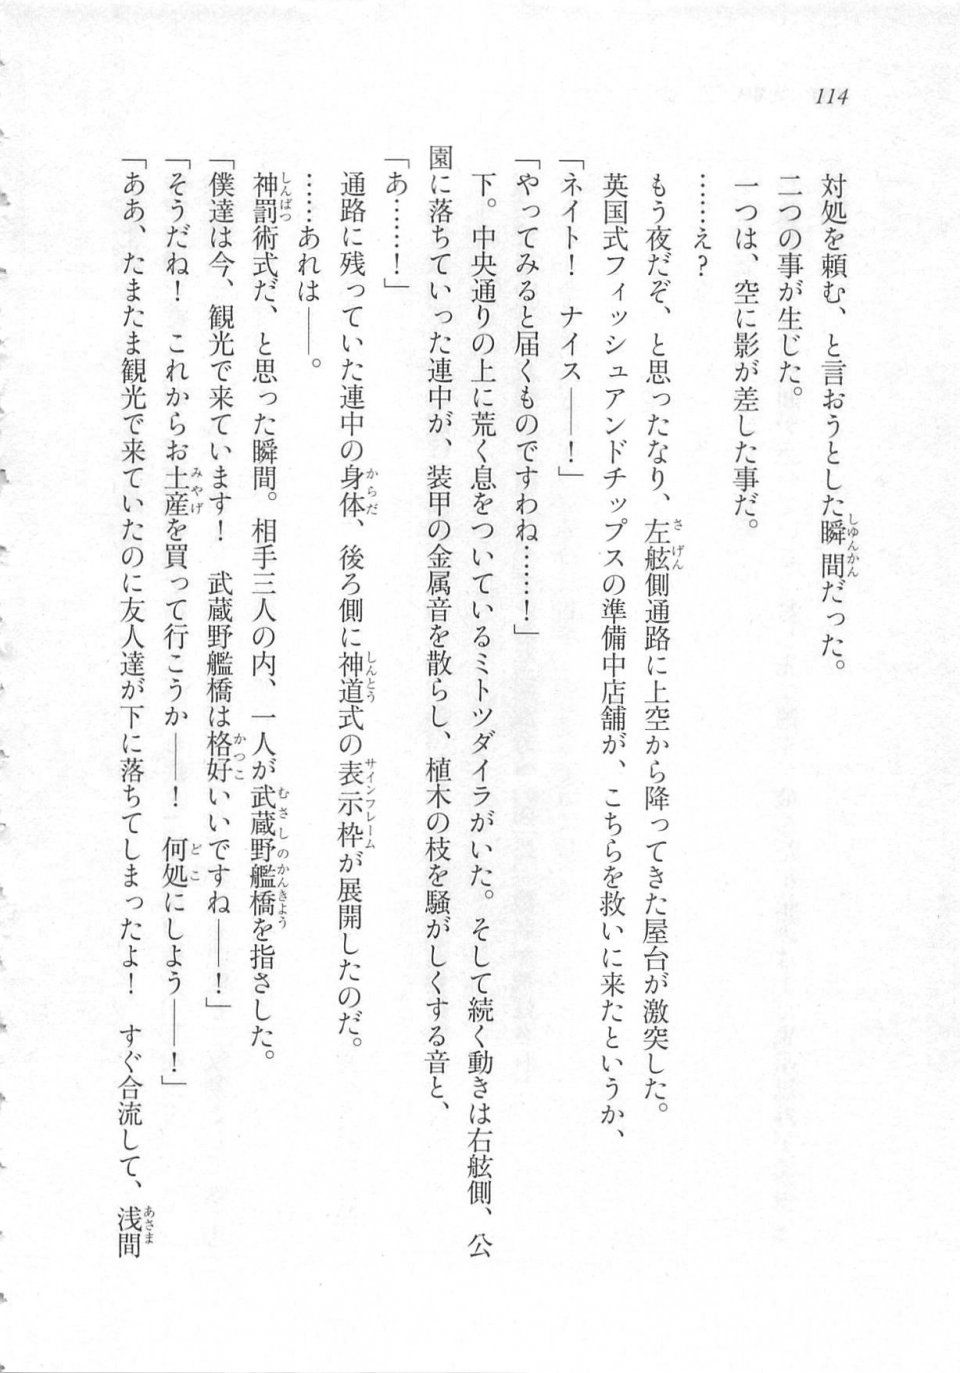 114
対処を頼む、と言おうとした瞬間だった。
二つの事が生じた。
一つは、空に影が差した事だ。
……え?
もう夜だぞ、と思ったなり、左舷側通路に上空から降ってきた屋台が激突した。
英国式フィッシュアンドチップスの準備中店舗が、こちらを救いに来たというか、
「ネイト! ナイス——!」
「やってみると届くものですわね……!」
下。中央通りの上に荒く息をついているミトツダイラがいた。そして続く動きは右舷側、公
園に落ちていった連中が、装甲の金属音を散らし、植木の枝を騒がしくする音と、
「あ……!」
通路に残っていた連中の身体、後ろ側に神道式の表示枠が展開したのだ。
……あれは——。
神罰術式だ、と思った瞬間。相手三人の内、一人が武蔵野艦橋を指さした。
「僕達は今、観光で来ています! 武蔵野艦橋は格好いいですね——!」
「そうだね! これからお土産を買って行こうか——! 何処にしよう——!」
「ああ、たまたま観光で来ていたのに友人達が下に落ちてしまったよ! すぐ合流して、浅間